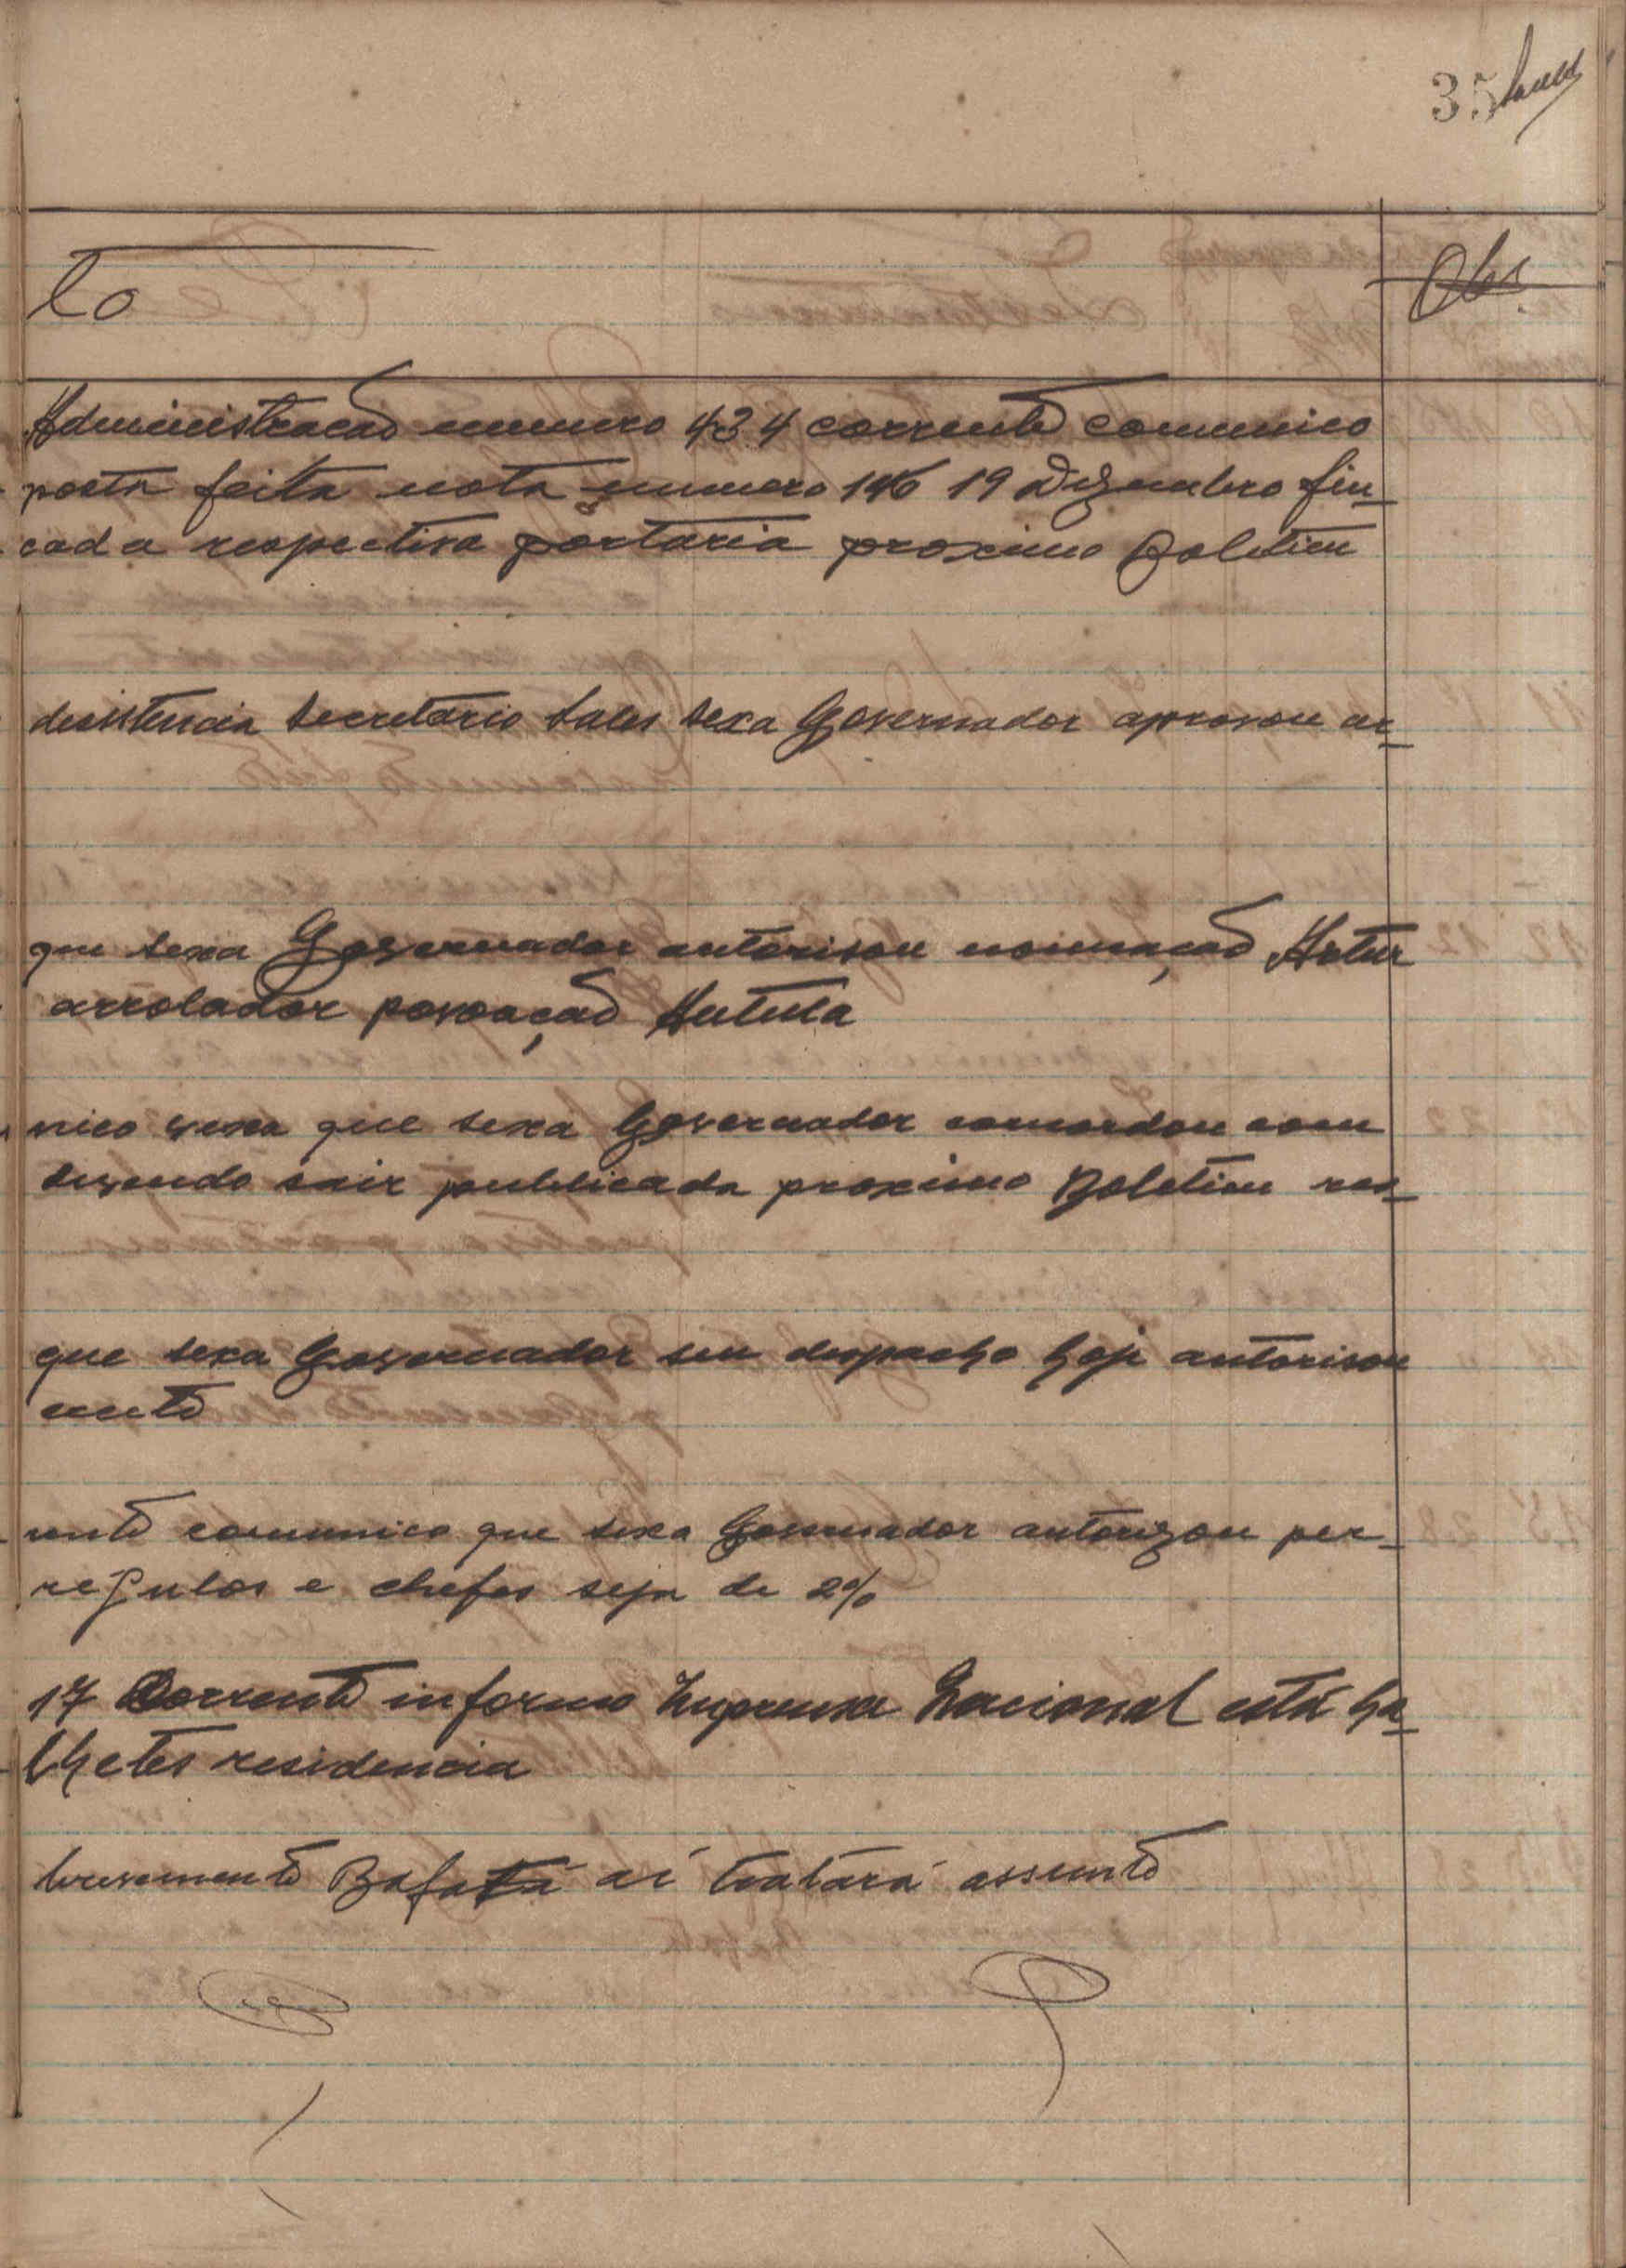 35
to
Obs.
Administracao numero 434 corrente comunico
posta feita nota numero 146 19 Dezembro fin-
cada respectiva portaria proximo Boletim
desistencia secretario Sales sexa Governador aprovou ar-
que sexa Governador autorisou nomeação Artur
arrolador povoação
nico vexa que sexa Governador concordou com
devendo sair publicada proximo Boletim res-
que sexa Governador seu despacho hoje autorisou
mento
rente comunico que sexa Governador autorizou per-
regulos e chefes seja de 2%
17 Corrente informo Imprensa Nacional está ha-
lhetes residencia
brevemente Bafatá aí tratará assunto